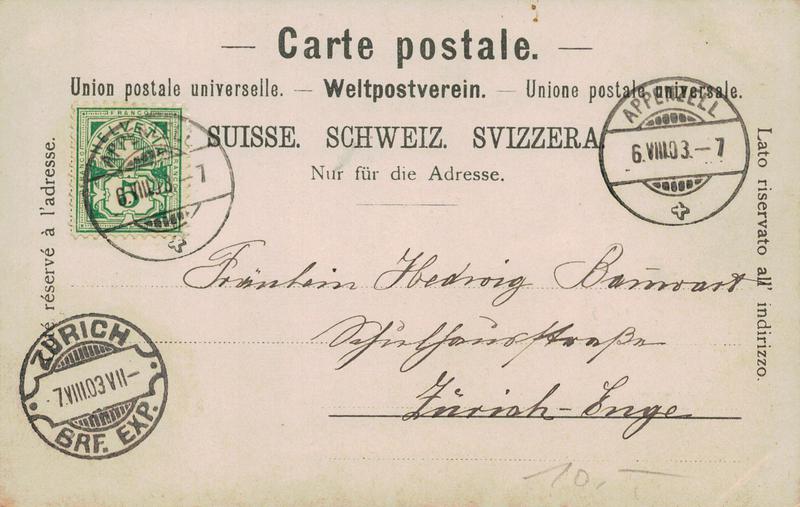 — Carte postale. —
Union postale universelle. — Weltpostverein. — Unione postale universale.
SUISSE. SCHWEIZ. SVIZZERA.
Nur für die Adresse.
réservé à l'adresse.
Lato riservato all' indirizzo.
FRANCO
HELVETIA
5
APPENZELL
6.VIII.03.–7
APPENZELL
6.VIII.03.–7
Fräulein Hedwig
Schulhausstraße
Zürich-Enge
ZÜRICH
7.VIII.03.VII–
BRF. EXP.
10.–